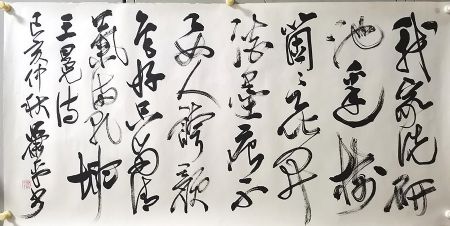 我家洗研
池邊樹
箇々花開
淡墨痕不
要人誇顏
色好只留清
氣滿乾坤
王冕诗
己亥仲秋